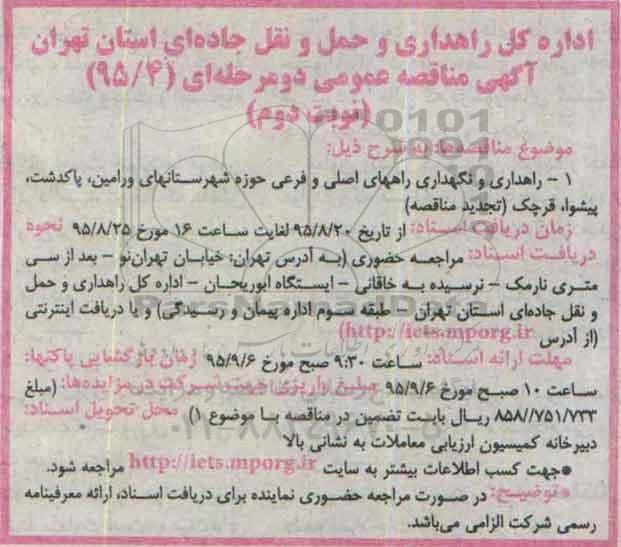 اداره کل راهداری و حمل و نقل جاده‌ای استان تهران
آگهی مناقصه عمومی دومرحله‌ای (۹۵/۴)
(نوبت دوم)
موضوع مناقصه‌ها: به شرح ذیل:
۱ - راهداری و نگهداری راههای اصلی و فرعی حوزه شهرستانهای ورامین، پاکدشت،
پیشوا، قرچک (تجدید مناقصه)
زمان دریافت اسناد: از تاریخ ۹۵/۸/۲۰ لغایت ساعت ۱۶ مورخ ۹۵/۸/۲۵ نحوه
دریافت اسناد: مراجعه حضوری (به آدرس تهران: خیابان تهران‌نو - بعد از سی
متری نارمک - نرسیده به خاقانی - ایستگاه ابوریحان - اداره کل راهداری و حمل
و نقل جاده‌ای استان تهران - طبقه سوم اداره پیمان و رسیدگی) و یا دریافت اینترنتی
(از آدرس http://iets.mporg.ir)
مهلت ارائه اسناد: ساعت ۹:۳۰ صبح مورخ ۹۵/۹/۶ زمان بازگشایی پاکتها:
ساعت ۱۰ صبح مورخ ۹۵/۹/۶ مبلغ واریزی جهت شرکت در مزایده‌ها: (مبلغ
۸۵۸//۷۵۱/۷۳۳ ریال بابت تضمین در مناقصه با موضوع ۱) محل تحویل اسناد:
دبیرخانه کمیسیون ارزیابی معاملات به نشانی بالا
●جهت کسب اطلاعات بیشتر به سایت http://iets.mporg.ir مراجعه شود.
●توضیح: در صورت مراجعه حضوری نماینده برای دریافت اسناد، ارائه معرفینامه
رسمی شرکت الزامی می‌باشد.
ParsNamadData